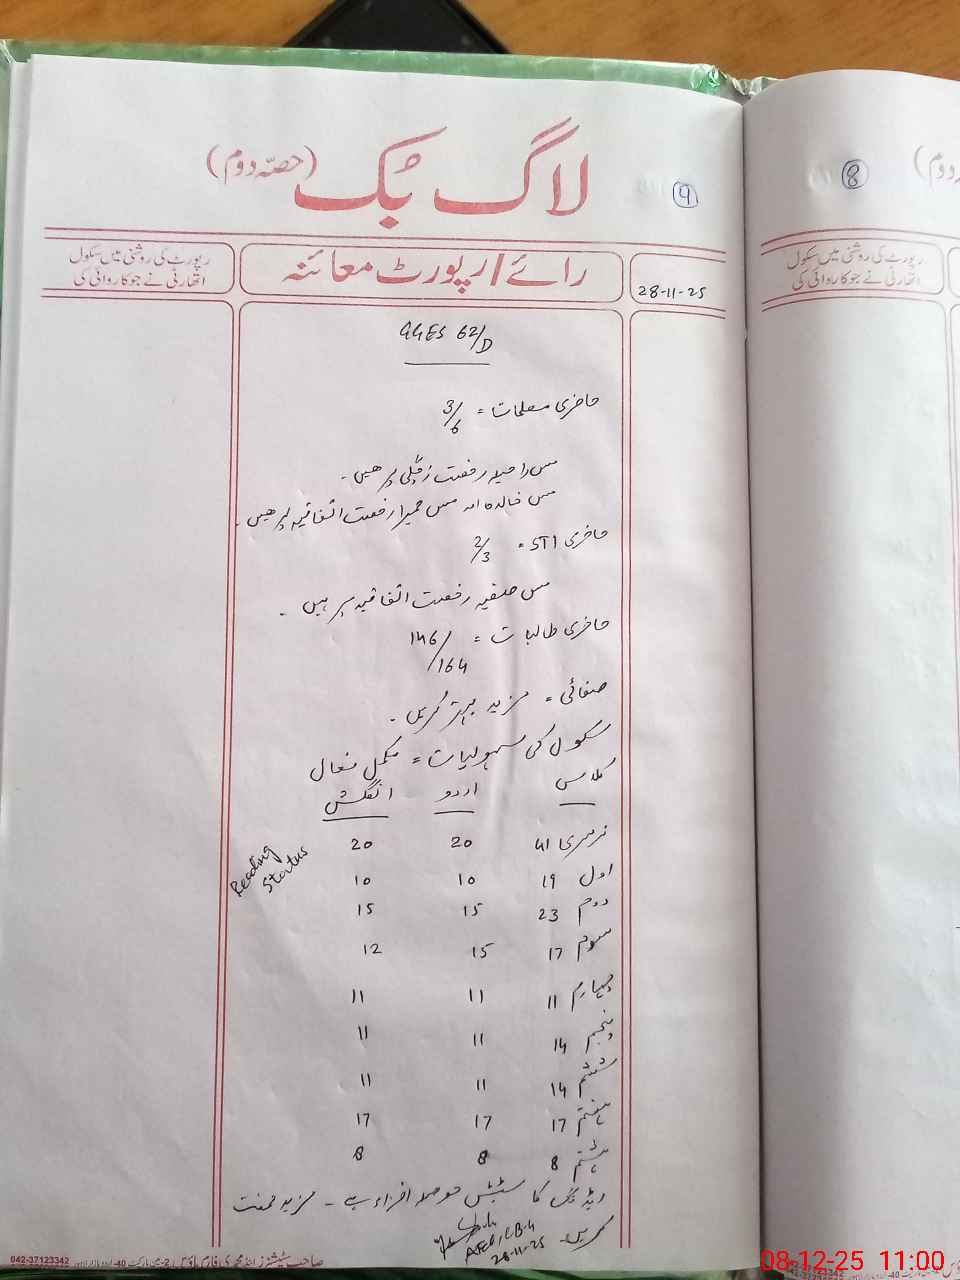 لاگ بُک (حصّہ دوم)
9
رپورٹ کی روشنی میں سکول
اتھارٹی نے جو کاروائی کی
رائے/رپورٹ معائنہ
28-11-25
GGES 62/D
حاضری معلمات = 3/6
مس راحیلہ رخصت زچگی پر ھیں۔
مس خالدہ اور مس حمیرا رخصت اتفاقیہ پر ھیں۔
حاضری STI = 2/3
مس صفیہ رخصت اتفاقیہ پر ہیں۔
حاضری طالبات = 146/164
صفائی = مزید بہتر کریں۔
سکول کی سہولیات = مکمل فعال
کلاس اردو انگلش
Reading Status
نرسری 41 20 20
اول 19 10 10
دوم 23 15 15
سوم 17 15 12
چہارم 11 11 11
پنجم 14 11 11
ششم 14 11 11
ہفتم 17 17 17
ہشتم 8 8 8
ریڈنگ کا سٹیٹس حوصلہ افزاء ہے - مزید محنت
کریں۔
28-11-25
042-37123342
8
رپورٹ کی روشنی میں سکول
اتھارٹی نے جو کاروائی کی
08-12-25 11:00